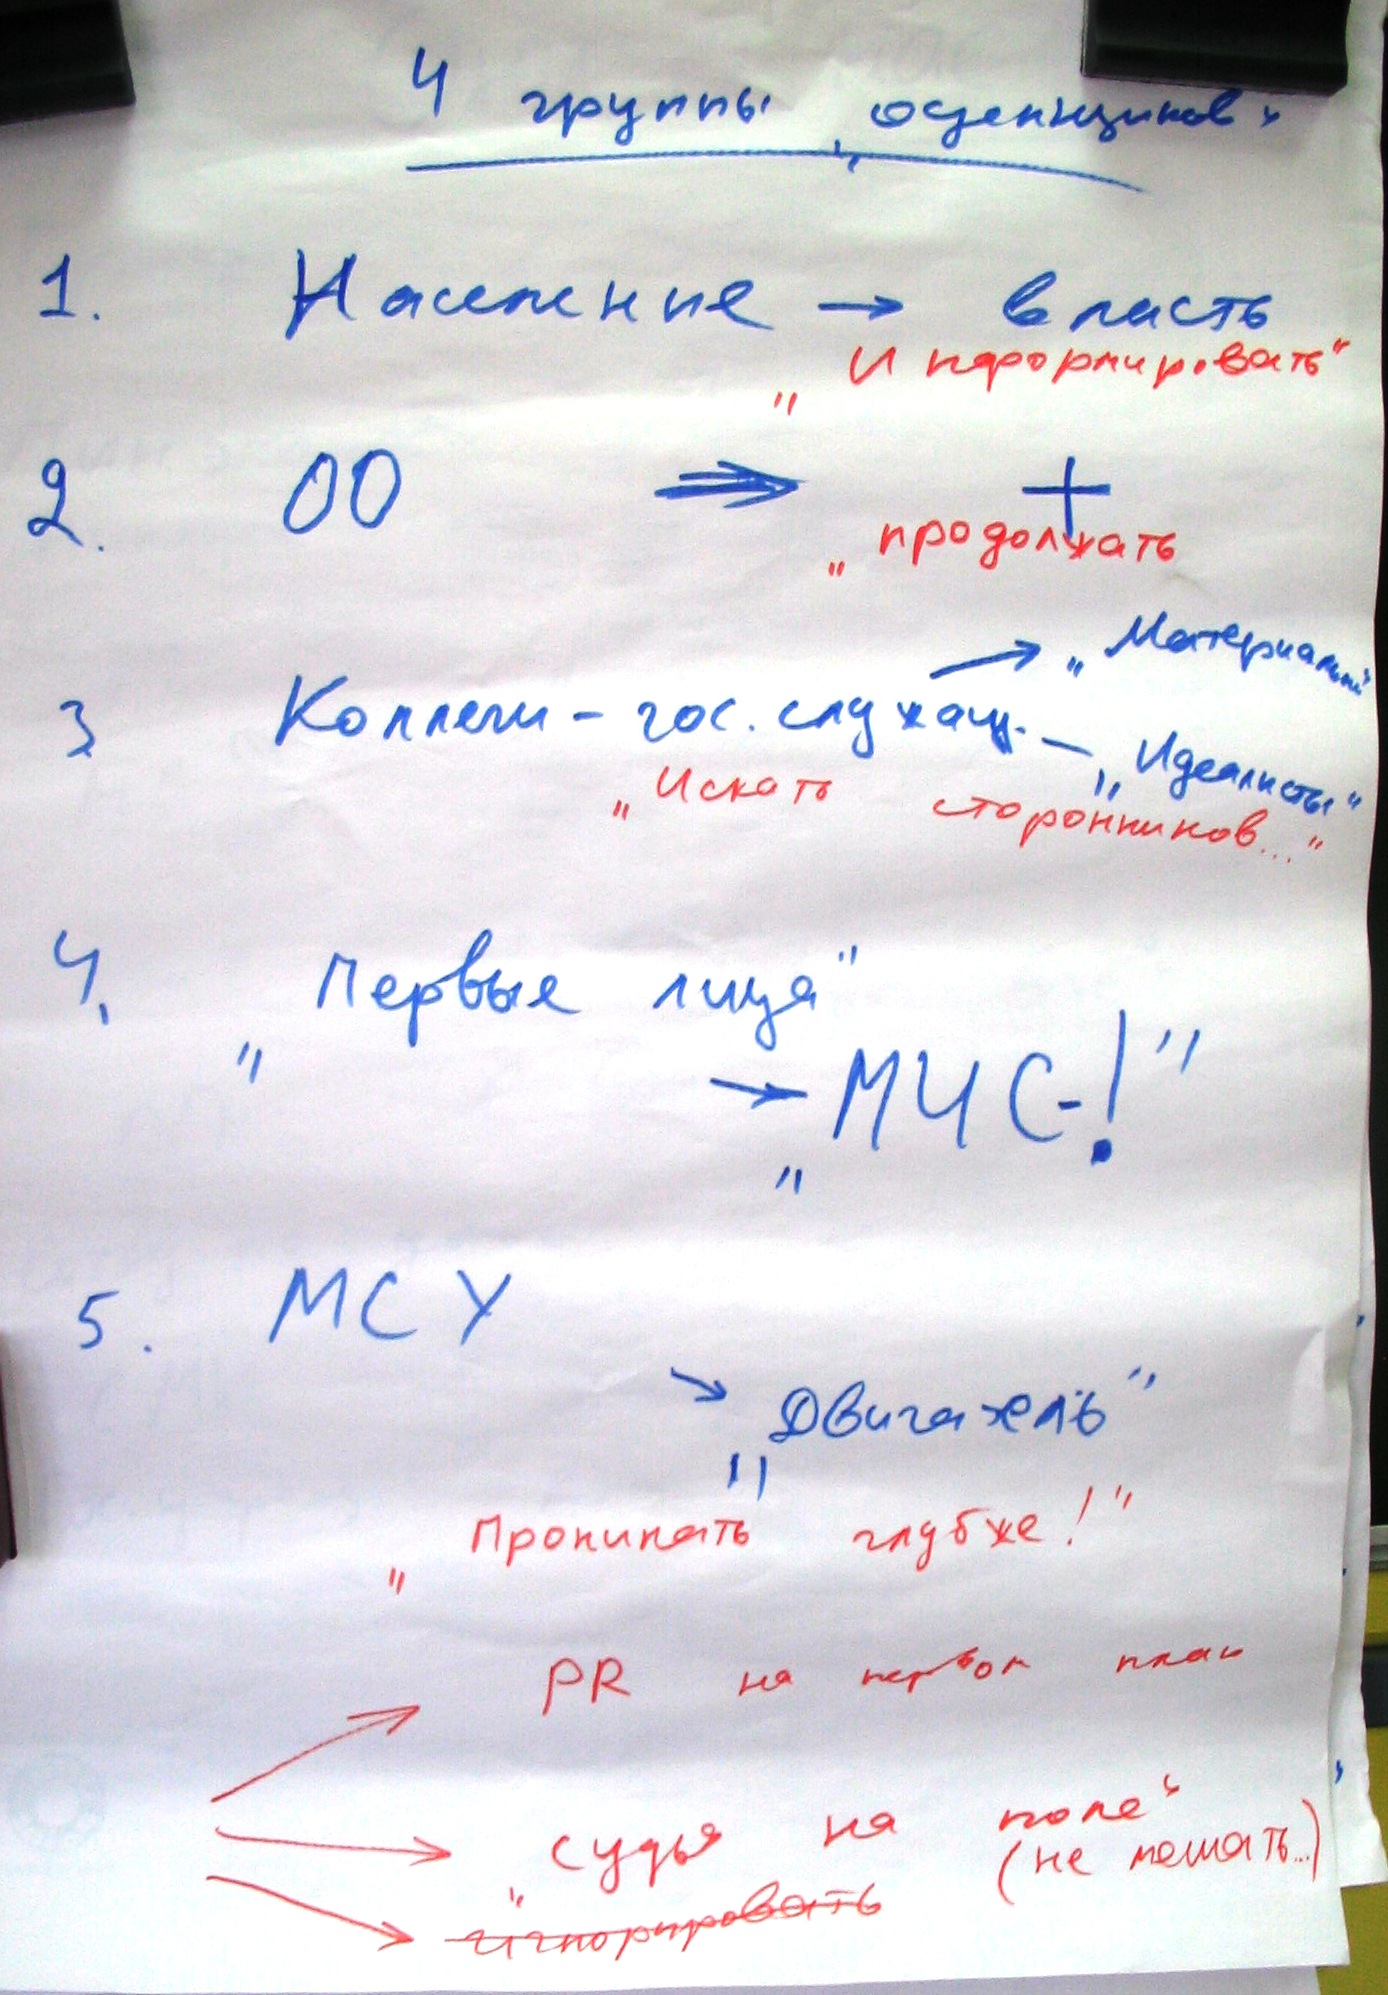 4 группы „оценщиков"
1. Население → власть
„Информировать"
2. ОО ⇒ +
„продолжать
→ „Материалы"
3 Коллеги - гос. служащ. — „Идеалисты"
„Искать сторонников..."
4. „Первые лица"
→ „МЧС-!"
5. МСУ
→ „Двигатель"
„Проникать глубже!"
PR на первом план
„Судья на поле"
(не мешать...)
игнорировать